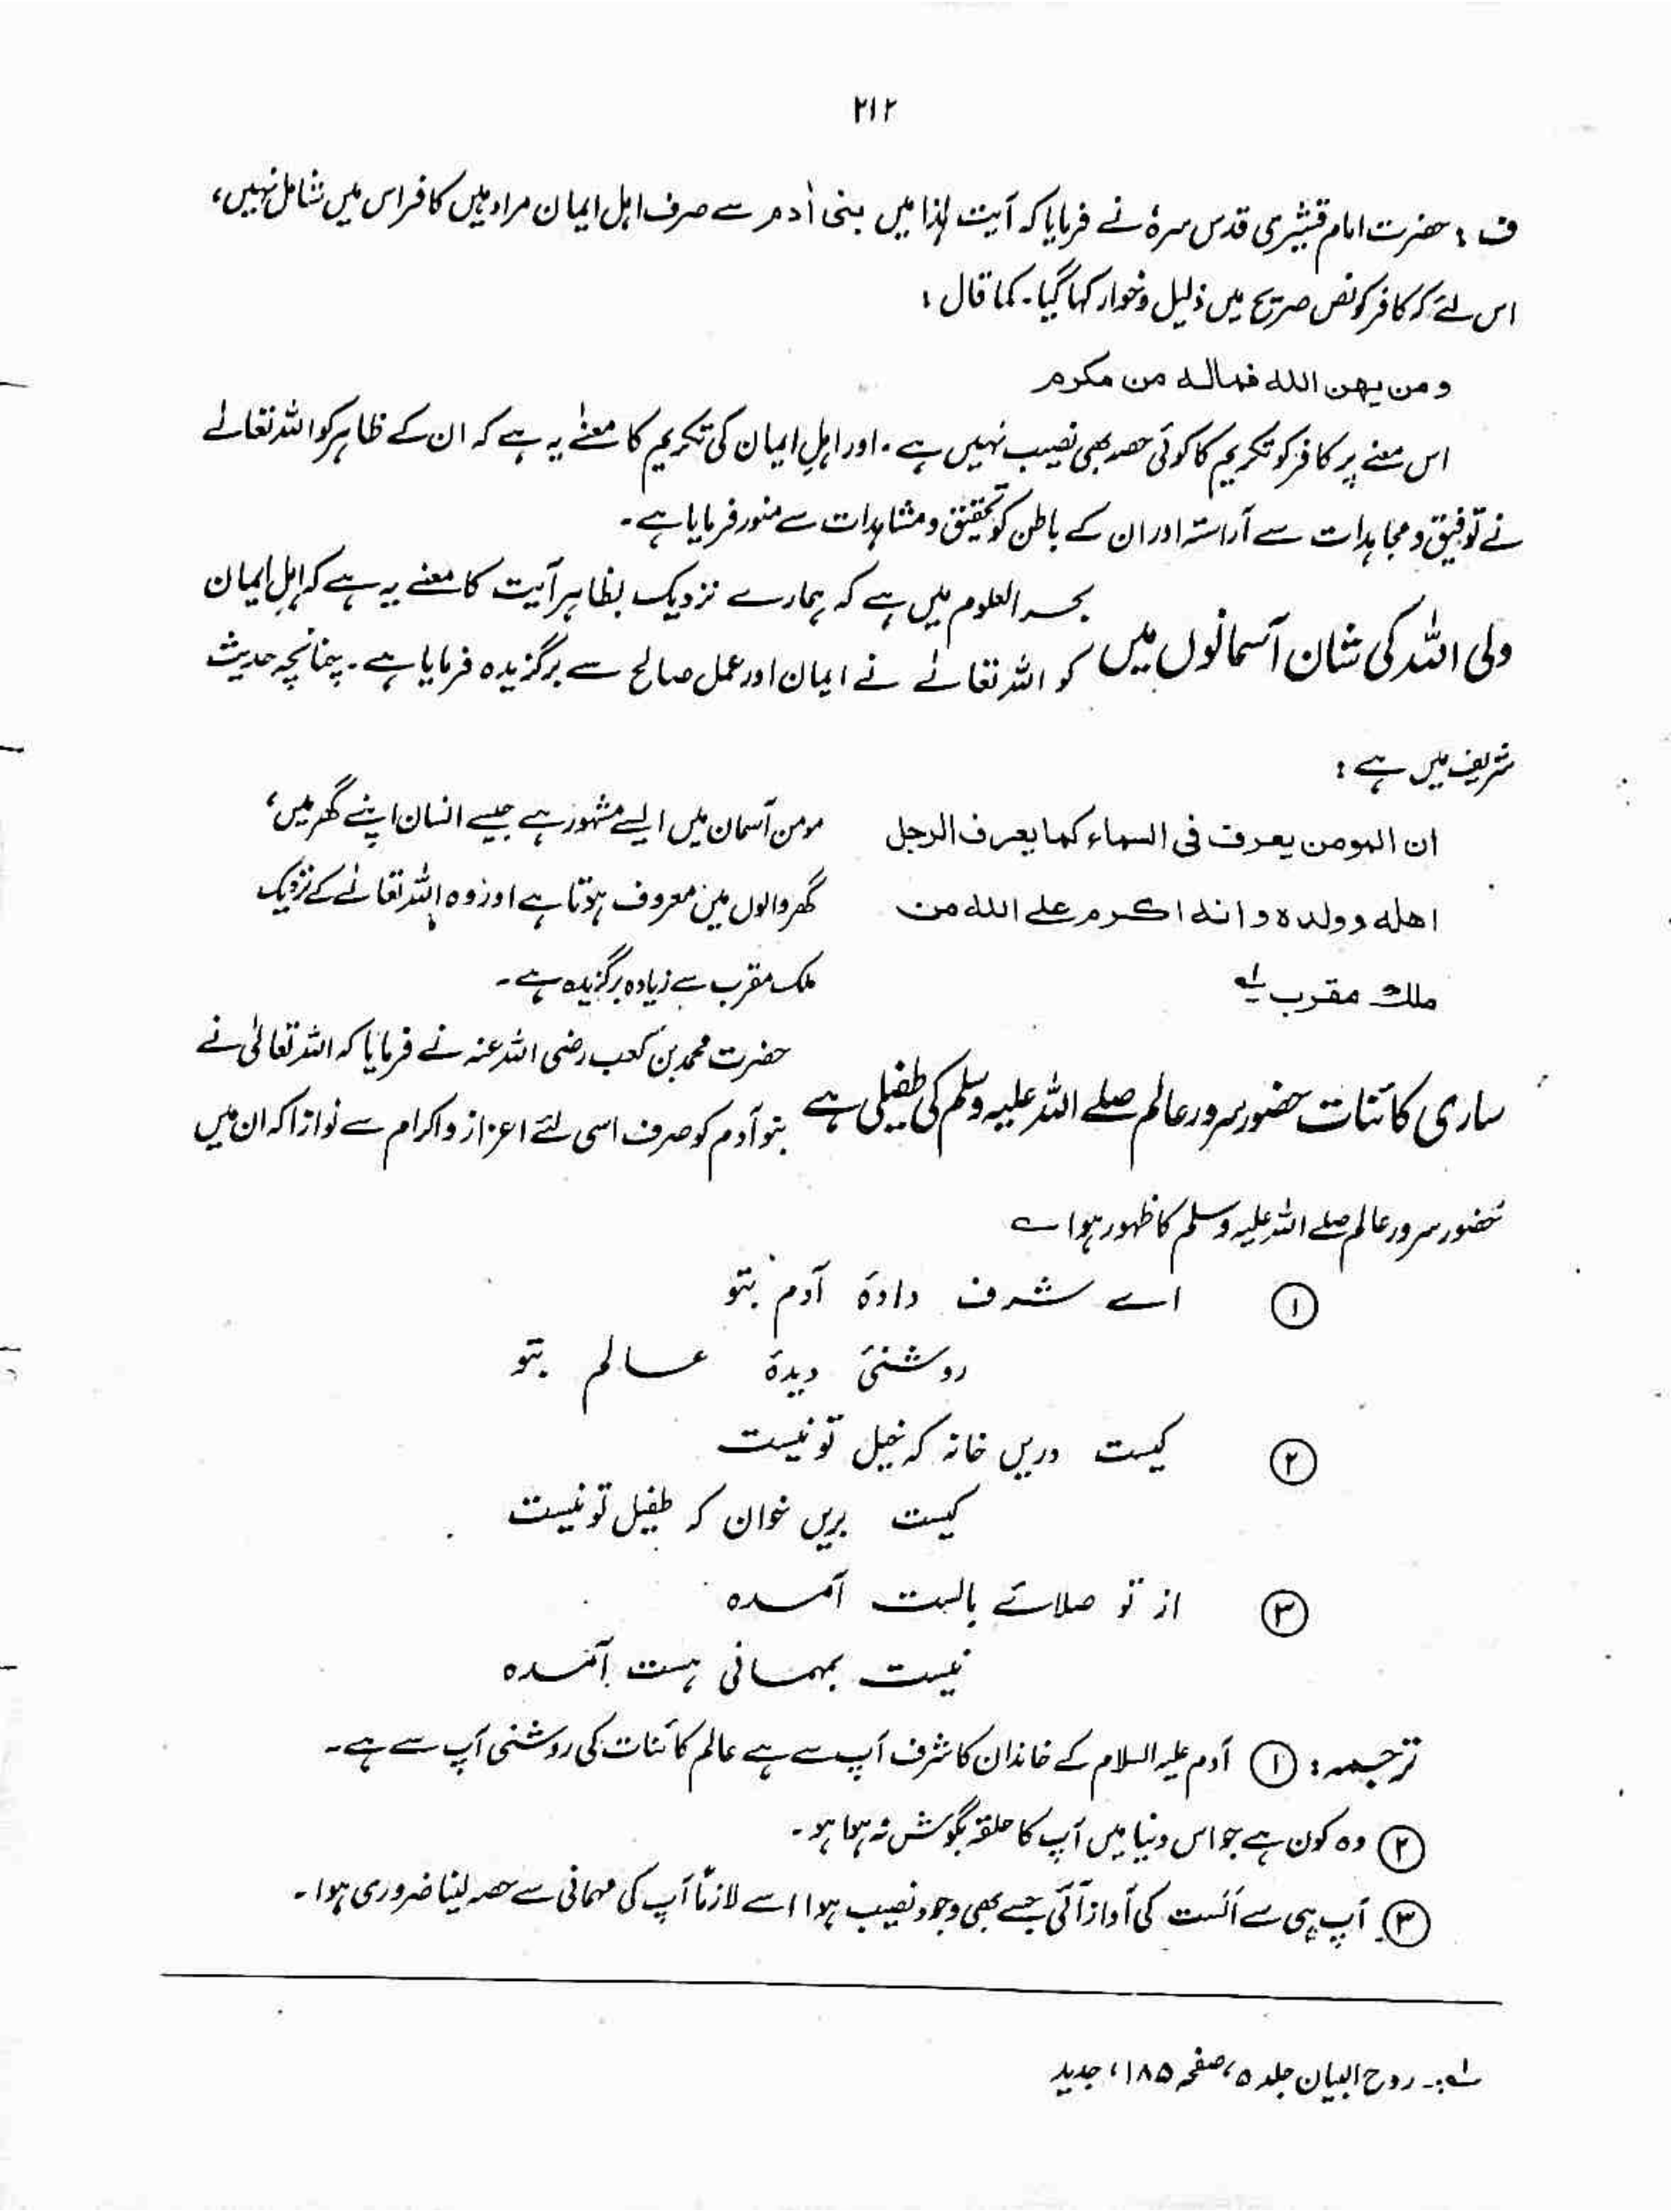 ۲۱۲
ف : حضرت امام قشیری قدس سرہٗ نے فرمایا کہ آیت ہٰذا میں بنی اٰدم سے صرف اہل ایمان مراد ہیں کافر اس میں شامل نہیں،
اس لئے کہ کافر کو نص صریح میں ذلیل و خوار کہا گیا۔ کما قال :
و من یھن اللہ فمالہ من مکرم
اس معنے پر کافر کو تکریم کا کوئی حصہ بھی نصیب نہیں ہے۔ اور اہلِ ایمان کی تکریم کا معنےٰ یہ ہے کہ ان کے ظاہر کو اللہ تعالےٰ
نے توفیق و مجاہدات سے آراستہ اور ان کے باطن کو تحقیق و مشاہدات سے منور فرمایا ہے۔
ولی اللہ کی شان آسمانوں میں
بحر العلوم میں ہے کہ ہمارے نزدیک بظاہر آیت کا معنے یہ ہے کہ اہلِ ایمان
کو اللہ تعالےٰ نے ایمان اور عمل صالح سے برگزیدہ فرمایا ہے۔ چنانچہ حدیث
شریف میں ہے :
ان المومن یعرف فی السماء کما یعرف الرجل
اھلہ و ولدہ و انہ اکرم علے اللہ من
ملك مقرب لہ
مومن آسمان میں ایسے مشہور ہے جیسے انسان اپنے گھر میں،
گھر والوں میں معروف ہوتا ہے اور وہ اللہ تعالےٰ کے نزدیک
ملک مقرب سے زیادہ برگزیدہ ہے۔
ساری کائنات حضور سرور عالم صلے اللہ علیہ وسلم کی طفیلی ہے
حضرت محمد بن کعب رضی اللہ عنہ نے فرمایا کہ اللہ تعالیٰ نے
بنو آدم کو صرف اسی لئے اعزاز و اکرام سے نوازا کہ ان میں
حضور سرور عالم صلے اللہ علیہ وسلم کا ظہور ہوا ؎
① اے شرف دادۂ آدم بتو
روشنئ دیدۂ عالم بتو
② کیست دریں خانہ کہ خیل تو نیست
کیست بریں خوان کہ طفیل تو نیست
③ از تو صلائے بالست آمدہ
نیست بمہمانی ہست آمدہ
ترجمہ : ① آدم علیہ السلام کے خاندان کا شرف آپ سے ہے عالم کائنات کی روشنی آپ سے ہے۔
② وہ کون ہے جو اس دنیا میں آپ کا حلقہ بگوش نہ ہوا ہو۔
③ آپ ہی سے اَلَست کی آواز آئی جسے بھی وجود نصیب ہوا اسے لازماً آپ کی مہمانی سے حصہ لینا ضروری ہوا۔
لہ :۔ روح البیان جلد ۵، صفحہ ۱۸۵، جدید